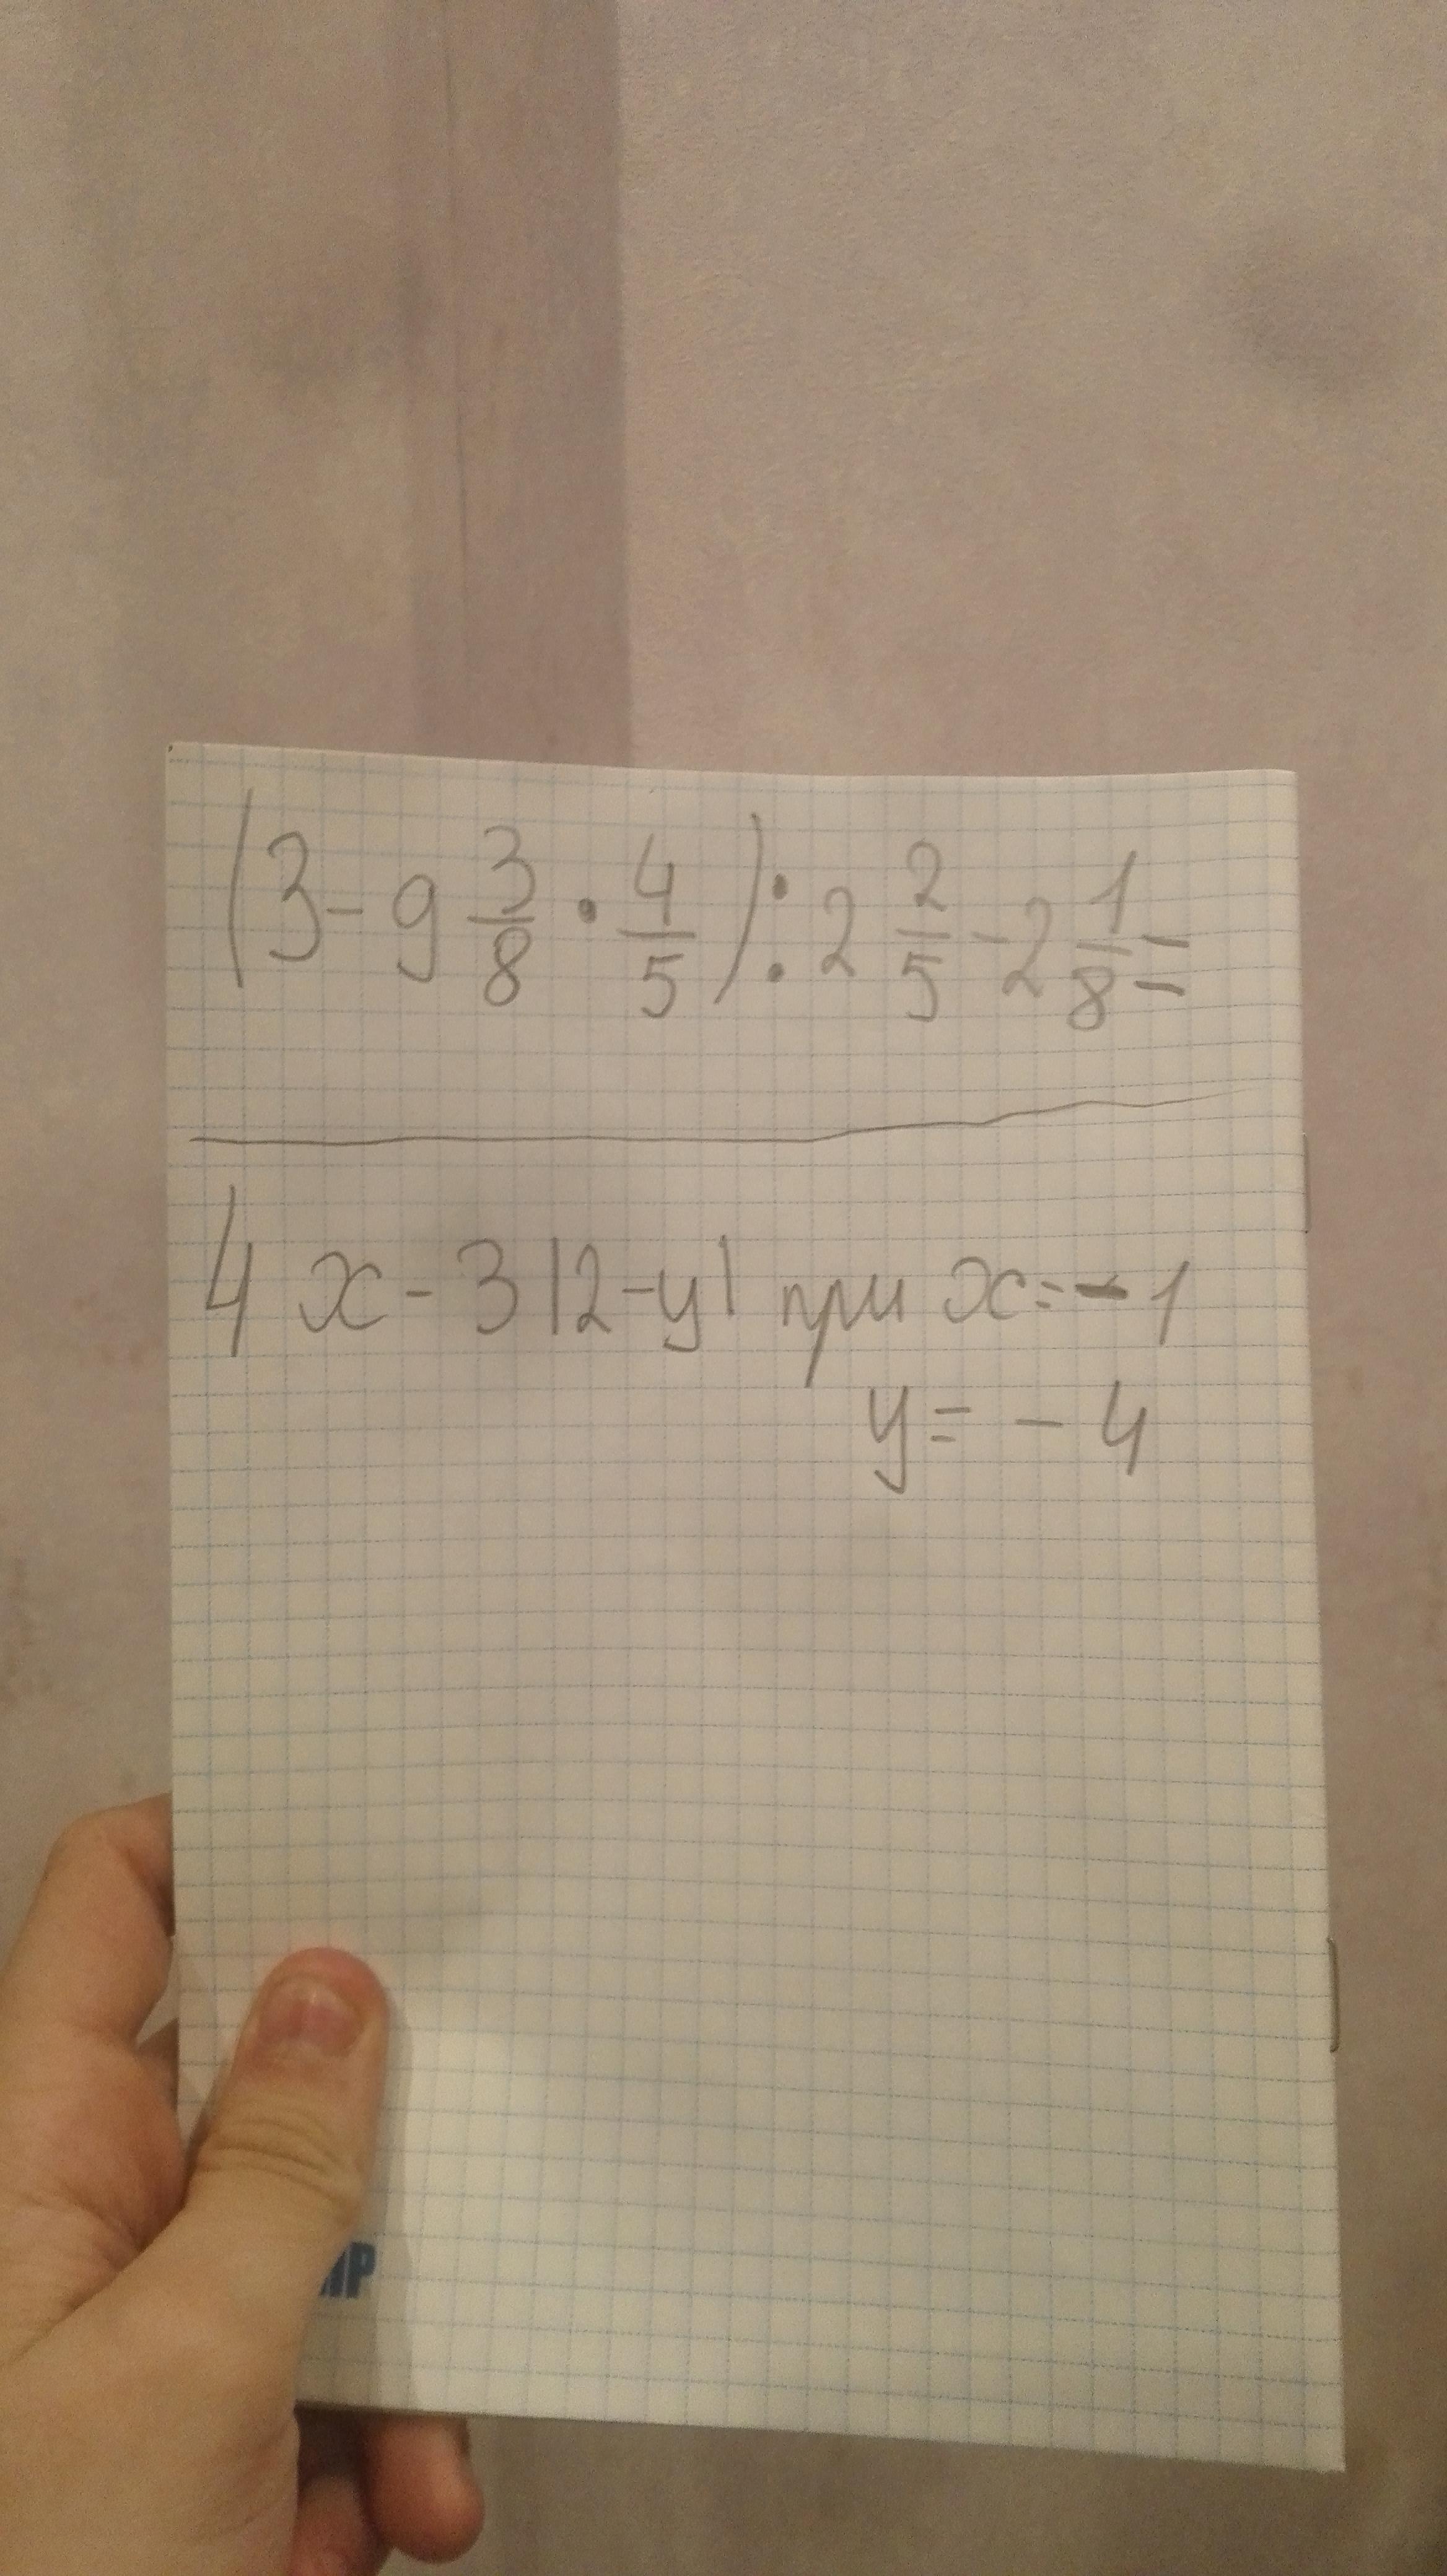 (3-9 3/8 · 4/5) : 2 2/5 - 2 1/8 =
4x - 3|2-y| при x=-1
y = - 4